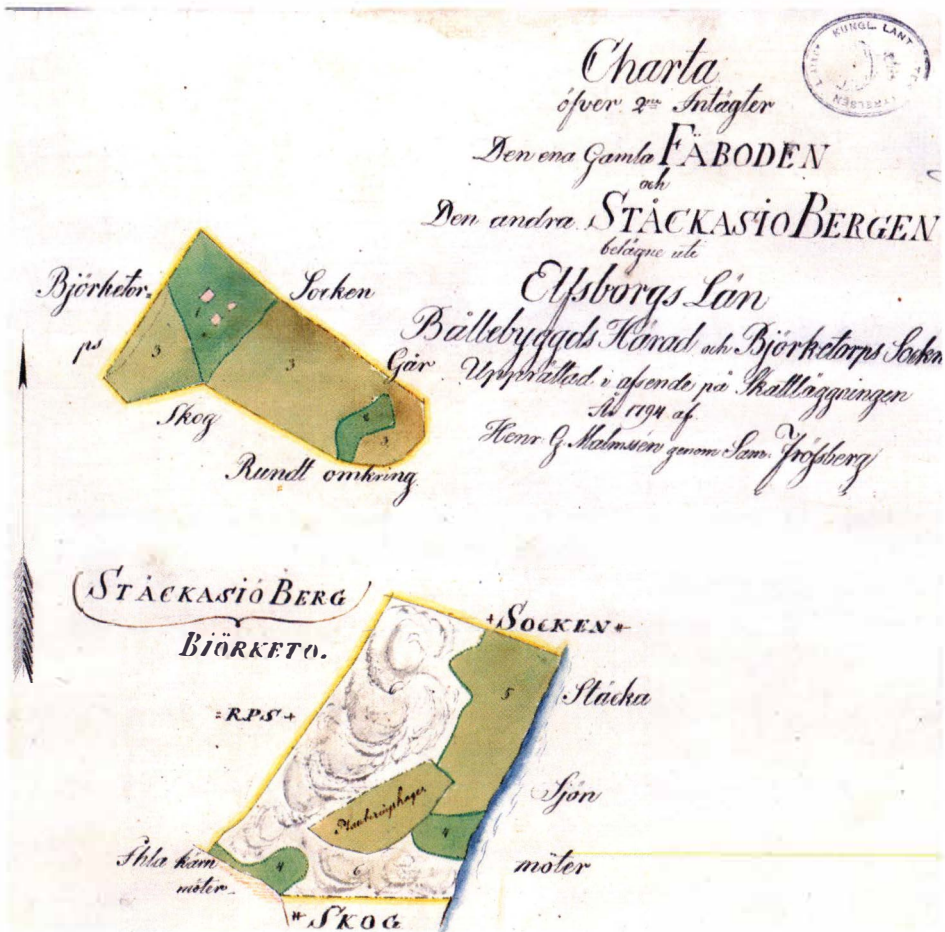 Charta
öfver 2ne Intägter
Den ena Gamla FÄBODEN
och
Den andra STÅCKASIÖ BERGEN
belägne uti
Elfsborgs Län
Bållebyggds Härad och Björketorps Sockn
Upprättad i afseende på Skattläggningen
År 1794 af
Henr. G. Malmsén genom Sam. Frössberg
KUNGL. LANT
Björketor=
ps
Socken
Går
Skog
Rundt omkring
3
3
3
STÅCKASIÖ BERG
BIÖRKETO.
=R.P.S+
+SOCKEN+
Ståcka
Sjön
möter
5
6
4
4
6
kärn
möter
SKOG